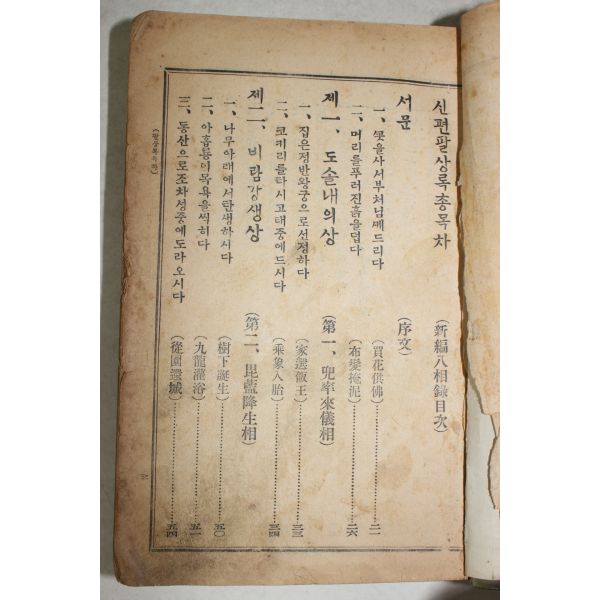 신편팔상록총목차 (新編八相錄目次)
서문 (序文)
一、꽃을사서부처님께드리다 (買花供佛) 二一
二、머리를푸러진흙을덥다 (布髮掩泥) 二六
제一、도솔내의상 (第一、兜率來儀相)
一、집은정반왕궁으로선정하다 (家選飯王) 三三
二、코키리를타시고태중에드시다 (乘象入胎) 三四
제二、비람강생상 (第二、毘藍降生相)
一、나무아래에서탄생하시다 (樹下誕生) 五〇
二、아홉룡이목욕을씩히다 (九龍灌浴) 五一
三、동산으로조차성중에도라오시다 (從園還城) 五四
(팔상록목차)